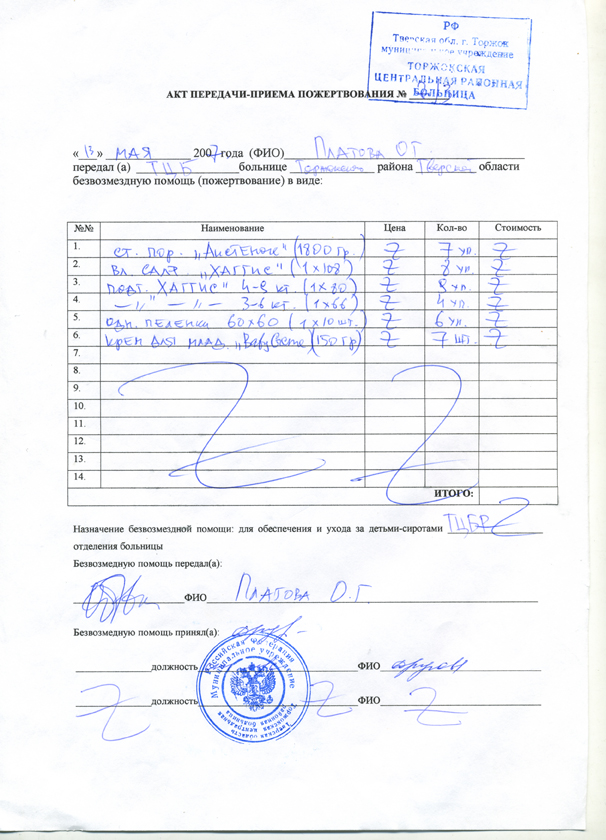 РФ
Тверская обл. г. Торжок
муниципальное учреждение
ТОРЖОКСКАЯ
ЦЕНТРАЛЬНАЯ РАЙОННАЯ
БОЛЬНИЦА
АКТ ПЕРЕДАЧИ-ПРИЕМА ПОЖЕРТВОВАНИЯ №
« 13 » МАЯ 2007 года (ФИО) ПЛАТОВА О Г.
передал (а) ТЦБ больнице района Тверской области
безвозмездную помощь (пожертвование) в виде:
№№ Наименование Цена Кол-во Стоимость
1. СТ. ПОР. „АИСТЕНОК" (1800 гр.) 7 уп.
2. ВЛ. САЛФ. „ХАГГИС" (1×108) 8 уп.
3. ПОДГ. ХАГГИС" 4-8 кг. (1×80) 8 уп.
4. —„— —„— 3-6 кг. (1×66) 4 уп.
5. ОДН. ПЕЛЕНКИ 60×60 (1×10 шт.) 6 уп.
6. КРЕМ ДЛЯ МЛАД. (150 гр) 7 шт.
7.
8.
9.
10.
11.
12.
13.
14.
ИТОГО:
Назначение безвозмездной помощи: для обеспечения и ухода за детьми-сиротами ТЦБР
отделения больницы
Безвозмедную помощь передал(а):
ФИО ПЛАТОВА О.Г
Безвозмедную помощь принял(а):
должность ФИО
должность ФИО
Российская Федерация
Муниципальное учреждение
Тверская область
Торжокская центральная
районная больница